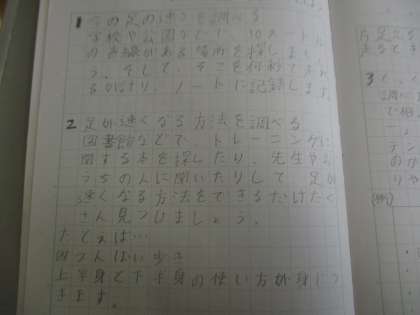 1 今の足の速さを調べる
学校や公園などで、10メートル
の直線がある場所を探しましょ
う。そして、そこを何秒で走れ
るかはかり、ノートに記録します。
2 足が速くなる方法を調べる
図書館などで、トレーニングに
関する本を探したり、先生やお
うちの人に聞いたりして、足が
速くなる方法をできるだけたく
さん見つけましょう。
たとえば…
四つんばい歩き
上半身と下半身の使い方が身につ
きます。
3
(例)